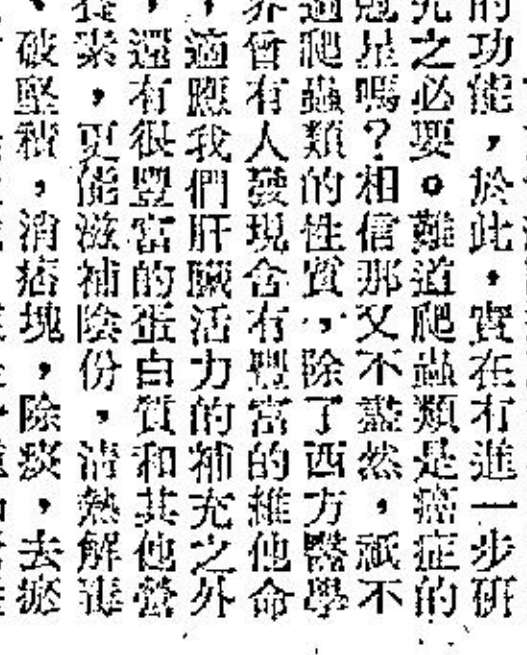 的功能，於此，實在有進一步研
究之必要。難道爬蟲類是癌症的
尅星嗎？相信那又不盡然，祇不
過爬蟲類的性質，除了西方醫學
界曾有人發現含有豐富的維他命
，適應我們肝臟活力的補充之外
，還有很豐富的蛋白質和其他營
養素，更能滋補陰份，清熱解毒
、破堅積，消痞塊，除痰，去瘀